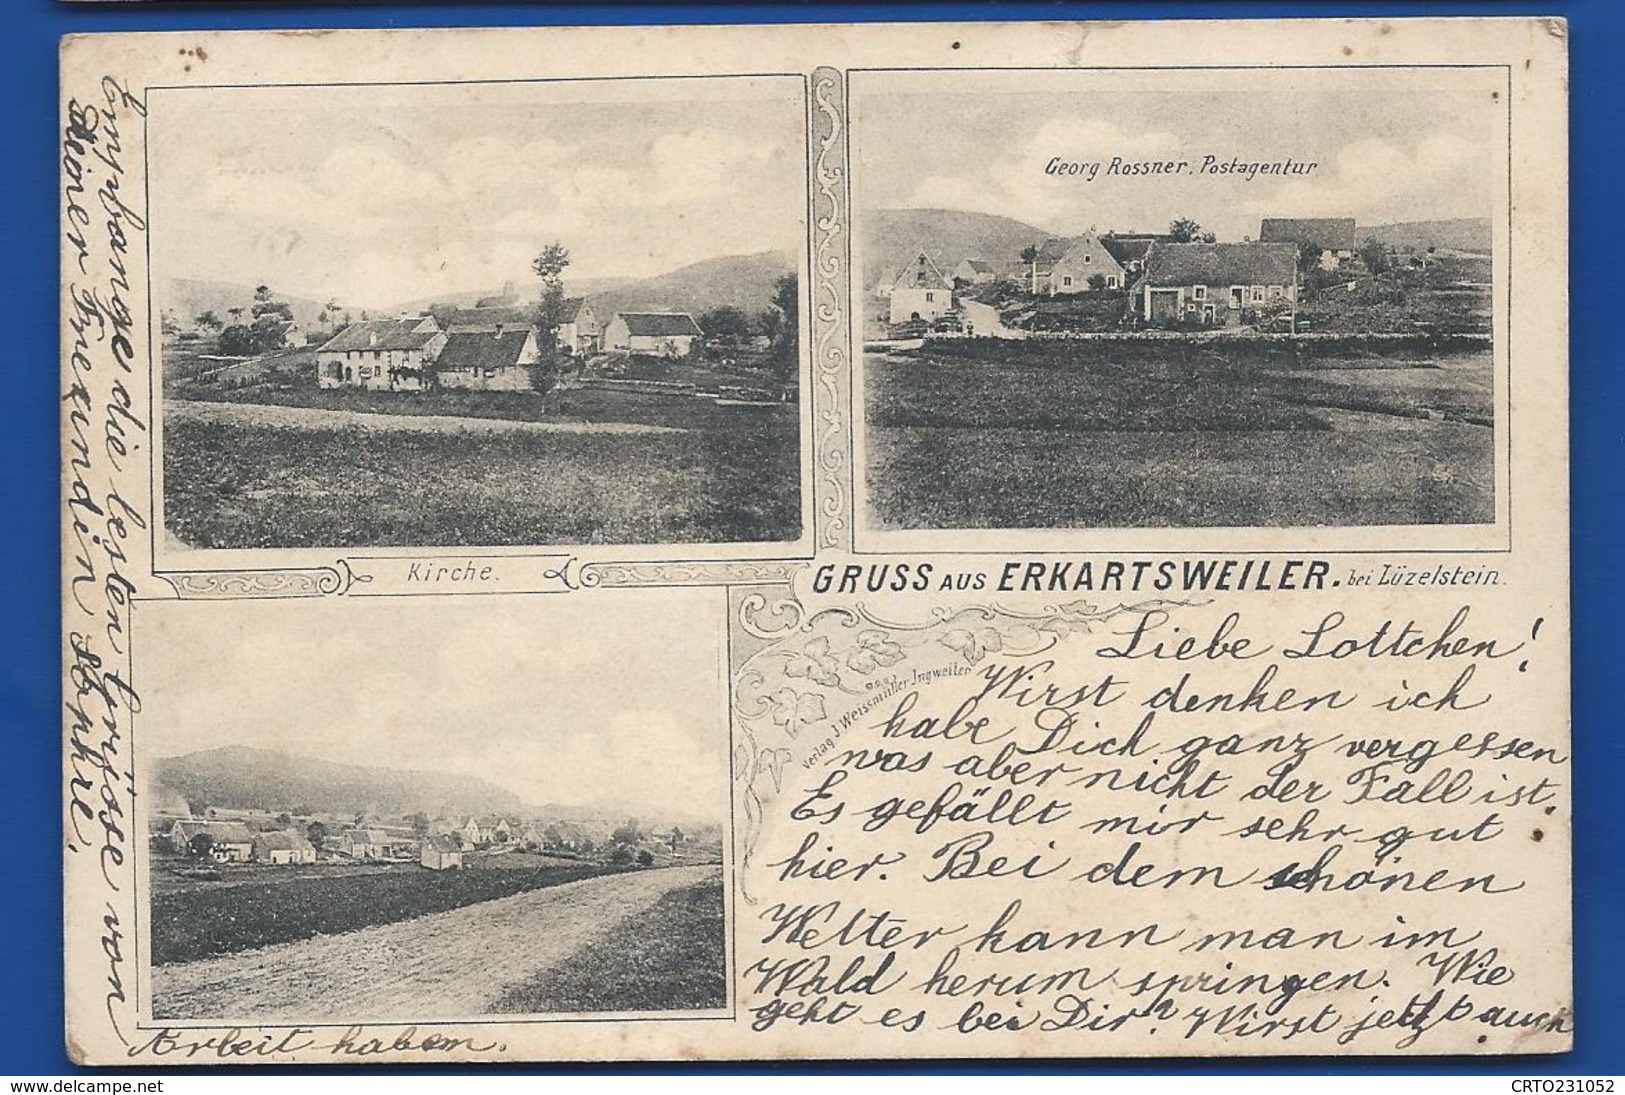 Georg Rossner, Postagentur
Kirche.
GRUSS AUS ERKARTSWEILER. bei Lüzelstein.
Verlag J. Weissmüller Ingweiler
Liebe Lottchen!
Wirst denken ich
habe Dich ganz vergessen
was aber nicht der Fall ist.
Es gefällt mir sehr gut
hier. Bei dem schönen
Wetter kann man im
Wald herum springen. Wie
geht es bei Dir? Wirst jetzt auch
Arbeit haben.
Empfange die besten Grüsse von
Deiner Freundin Sophie.
delcampe.net
CRTO231052